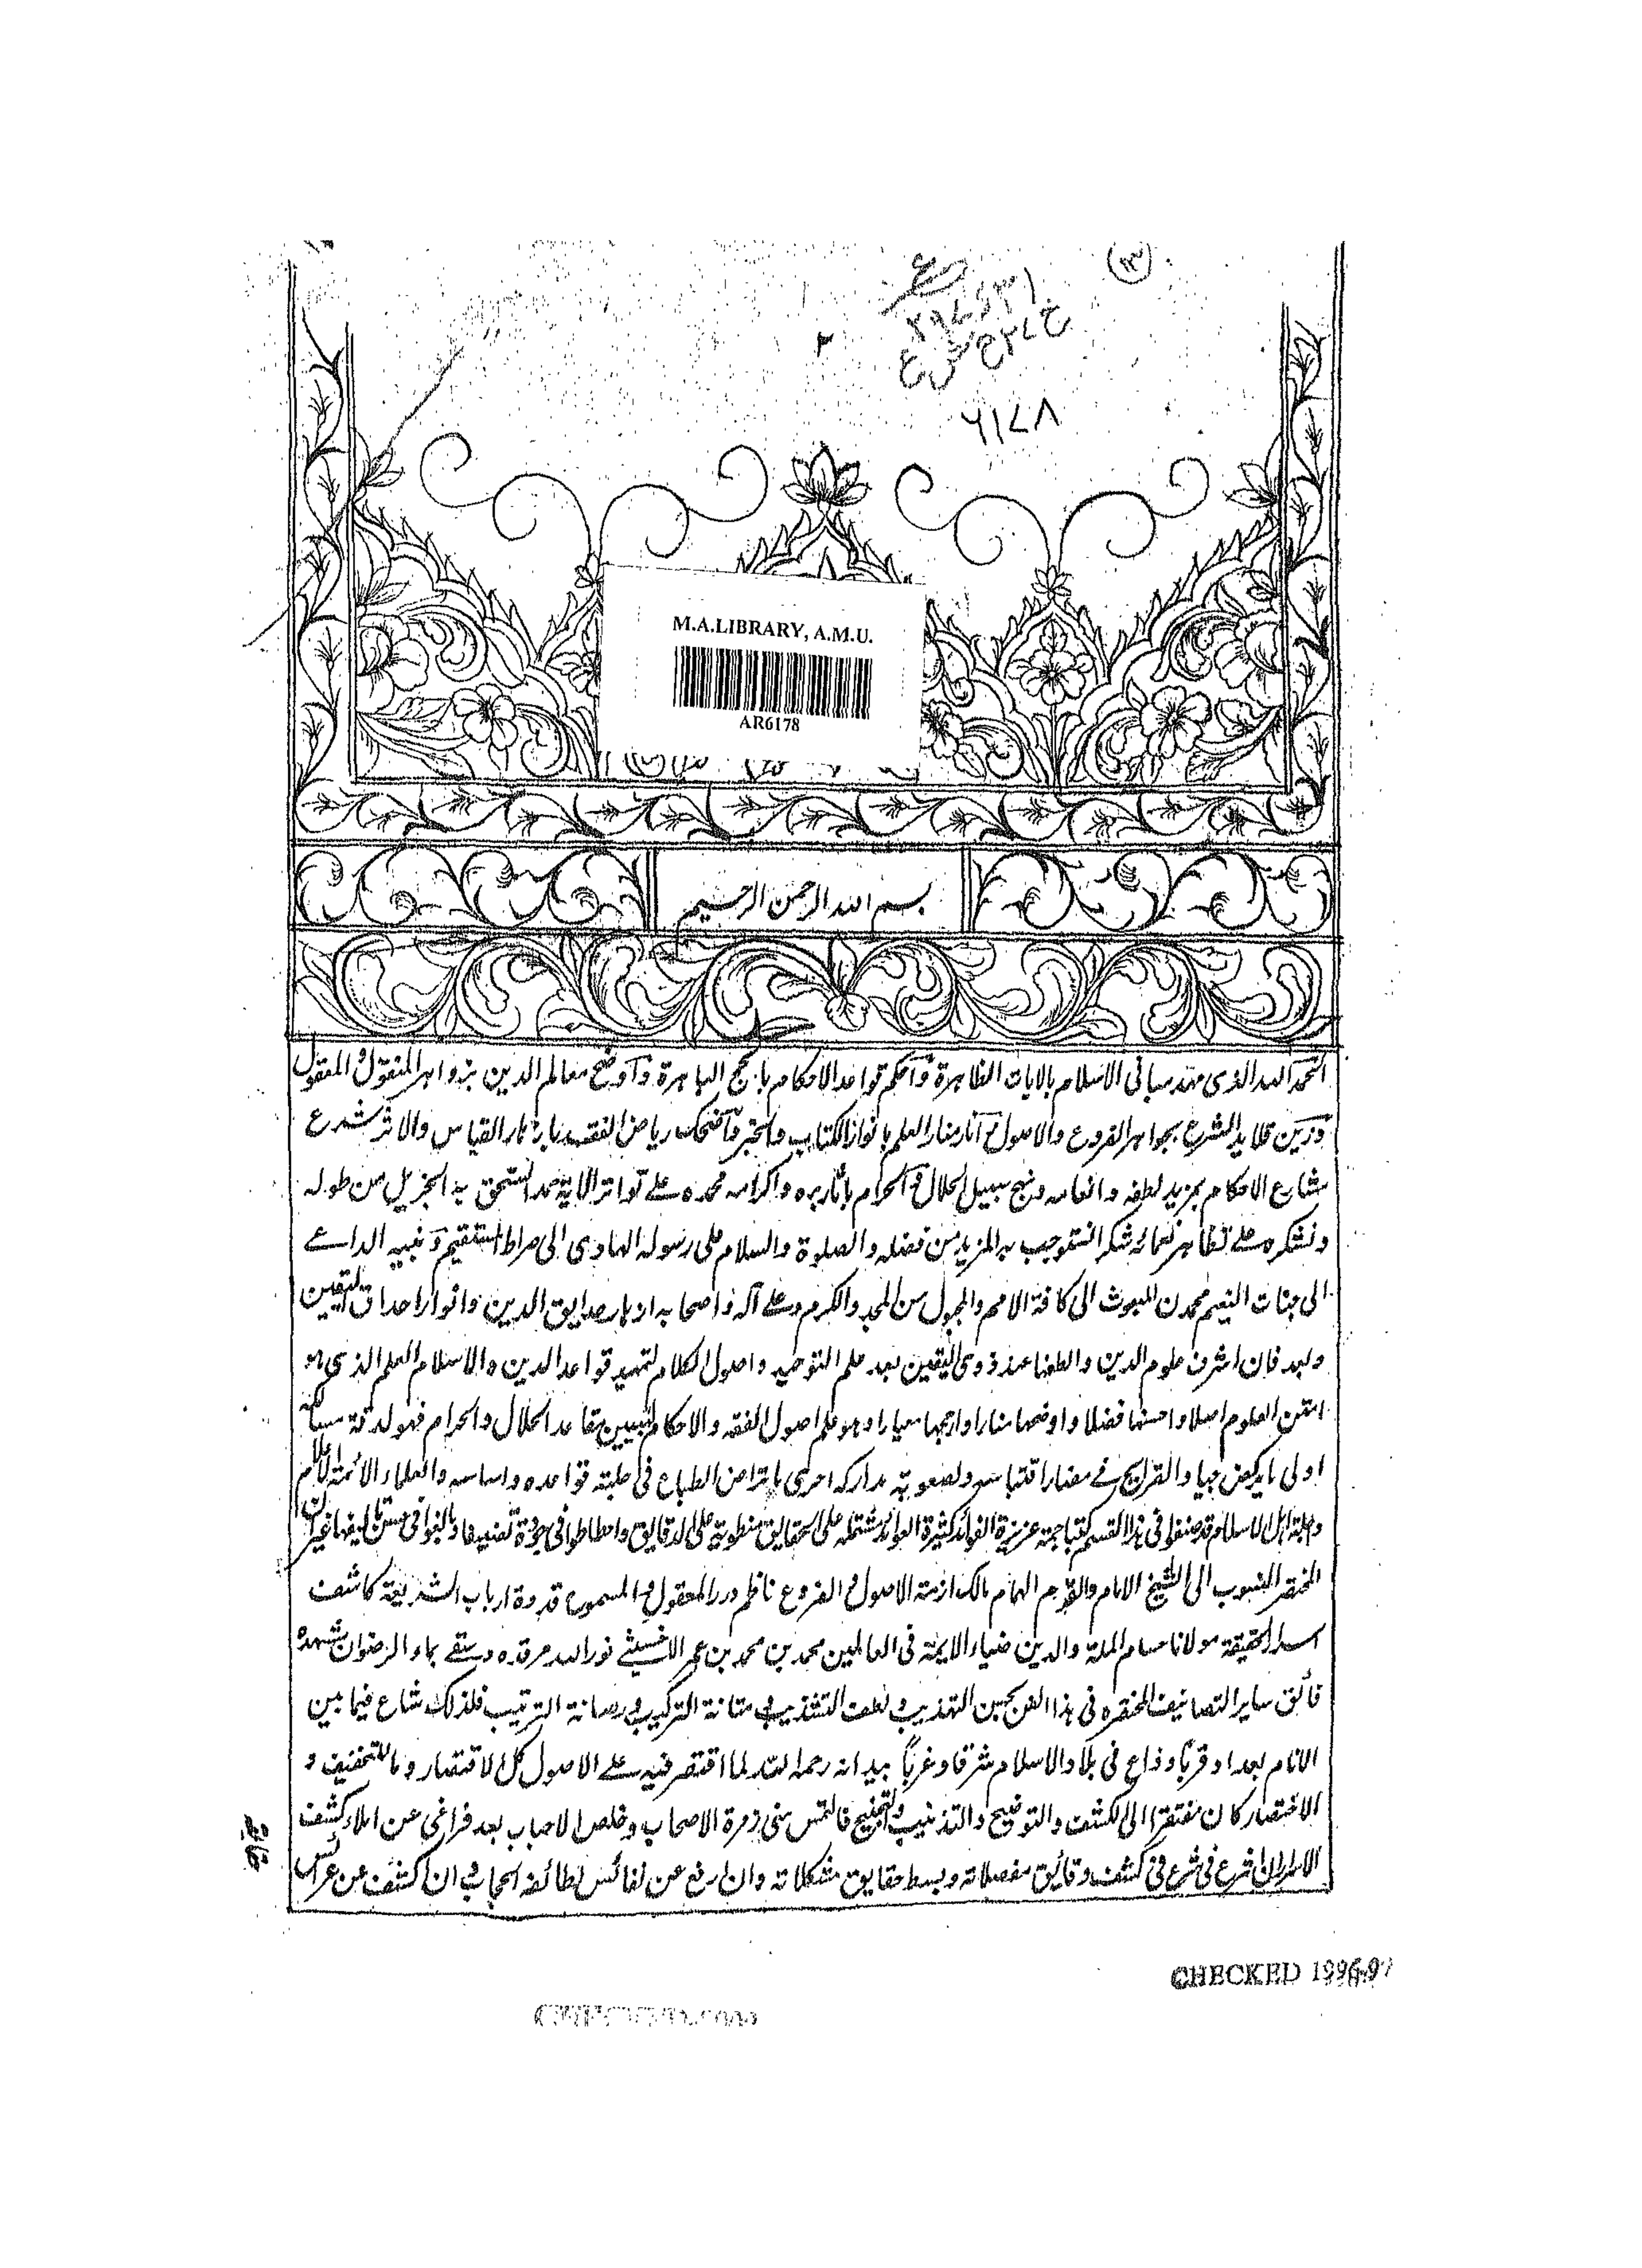 ٦١٧٨
M.A.LIBRARY, A.M.U.
AR6178
بسم الله الرحمن الرحيم
الحمد لله الذى مهد مبانى الاسلام بالايات الظاهرة واحكم قواعد الاحكام بالحجج الباهرة واوضح معالم الدين بزواهر المنقول والمعقول
وزين قلايد الشرع بجواهر الفروع والاصول انار منار العلم بانوار الكتاب والخبر واضحك رياض الفقه بازهار القياس والاثر شرع
مشارع الاحكام بمزيد لطفه وانعامه ونهج سبيل الحلال والحرام باثار بره واكرامه نحمده على تواتر الايه حمدا نستحق به الجزيل من طوله
ونشكره على تظاهر نعمائه شكرا نستوجب به المزيد من فضله والصلوة والسلام على رسوله الهادى الى صراط المستقيم ونبيه الداعى
الى جنات النعيم محمدن المبعوث الى كافة الامم والمجبول من المجد والكرم وعلى آله واصحابه ازهار حدايق الدين وانوار احداق اليقين
وبعد فان اشرف علوم الدين والطفها عند ذوى اليقين بعد علم التوحيد واصول الكلام لتمهيد قواعد الدين والاسلام العلم الذى هو
امتن العلوم اصلا واحسنها فضلا واوضحها منارا وارجحها معيارا وهو علم اصول الفقه والاحكام لتبيين مقاعد الحلال والحرام فهو لدقة مسالكه
اولى ما يركض جياد القرايح فى مضمار اقتباسه ولصعوبة مداركه احرى ما تراض الطباع فى حلبة قواعده واساسه والعلماء الائمة الاعلام
واجلة اهل الاسلام قد صنفوا فى هذا القسم كتبا جمة عزيزة الفوائد كثيرة العوائد مشتملة على الحقايق منطوية على الدقايق
المختصر المنسوب الى الشيخ الامام والقرم الهمام مالك ازمة الاصول والفروع ناظم درر المعقول والمسموع قدوة ارباب الشريعة كاشف
اسرار الحقيقة مولانا حسام الملة والدين ضياء الايمة فى العالمين محمد بن محمد بن عمر الاخسيكثى نور الله مرقده وسقى بماء الرضوان مشهده
فائق ساير التصانيف المختصره فى هذا الفن بحسن التهذيب ولطف التشذيب ومتانة التركيب ورصانة الترتيب فلذلك شاع فيما بين
الانام بعدا وقربا وذاع فى بلاد الاسلام شرقا وغربا بيد انه رحمه الله لما اقتصر فيه على الاصول كل الاقتصار ومال للتخفيف و
الاختصار كان مفتقرا الى الكشف والتوضيح والتذنيب والتنقيح فالتمس منى زمرة الاصحاب وخلص الاحباب بعد فراغى عن املاء كشف
الاسرار ان اشرع فى شرع فى كشف دقايق مفصلاته وبسط حقايق مشكلاته وان ارفع عن نفائس لطائفه الحجاب وان اكشف عن عرائس
CHECKED 1996-97